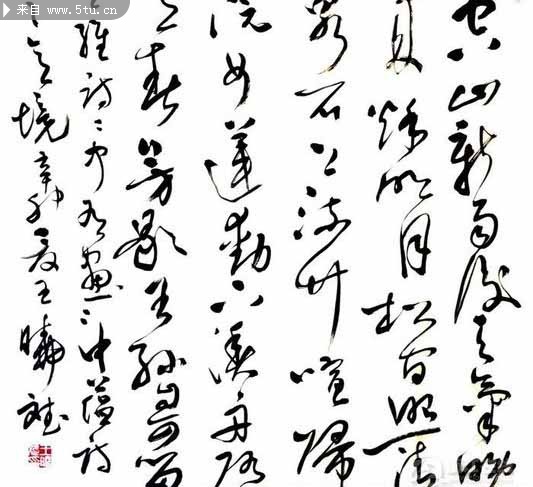 来自 www.5tu.cn
空山新雨後天氣晚
來秋明月松间照清
泉石上流竹喧歸
浣女蓮動下漁舟随
意春芳歇王孫自可留
維詩詩中有畫畫中蘊詩
之意境辛卯夏王曉斌